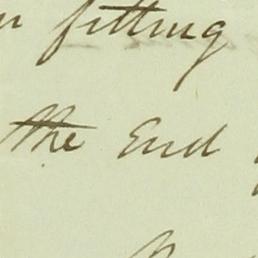 fitting
the End